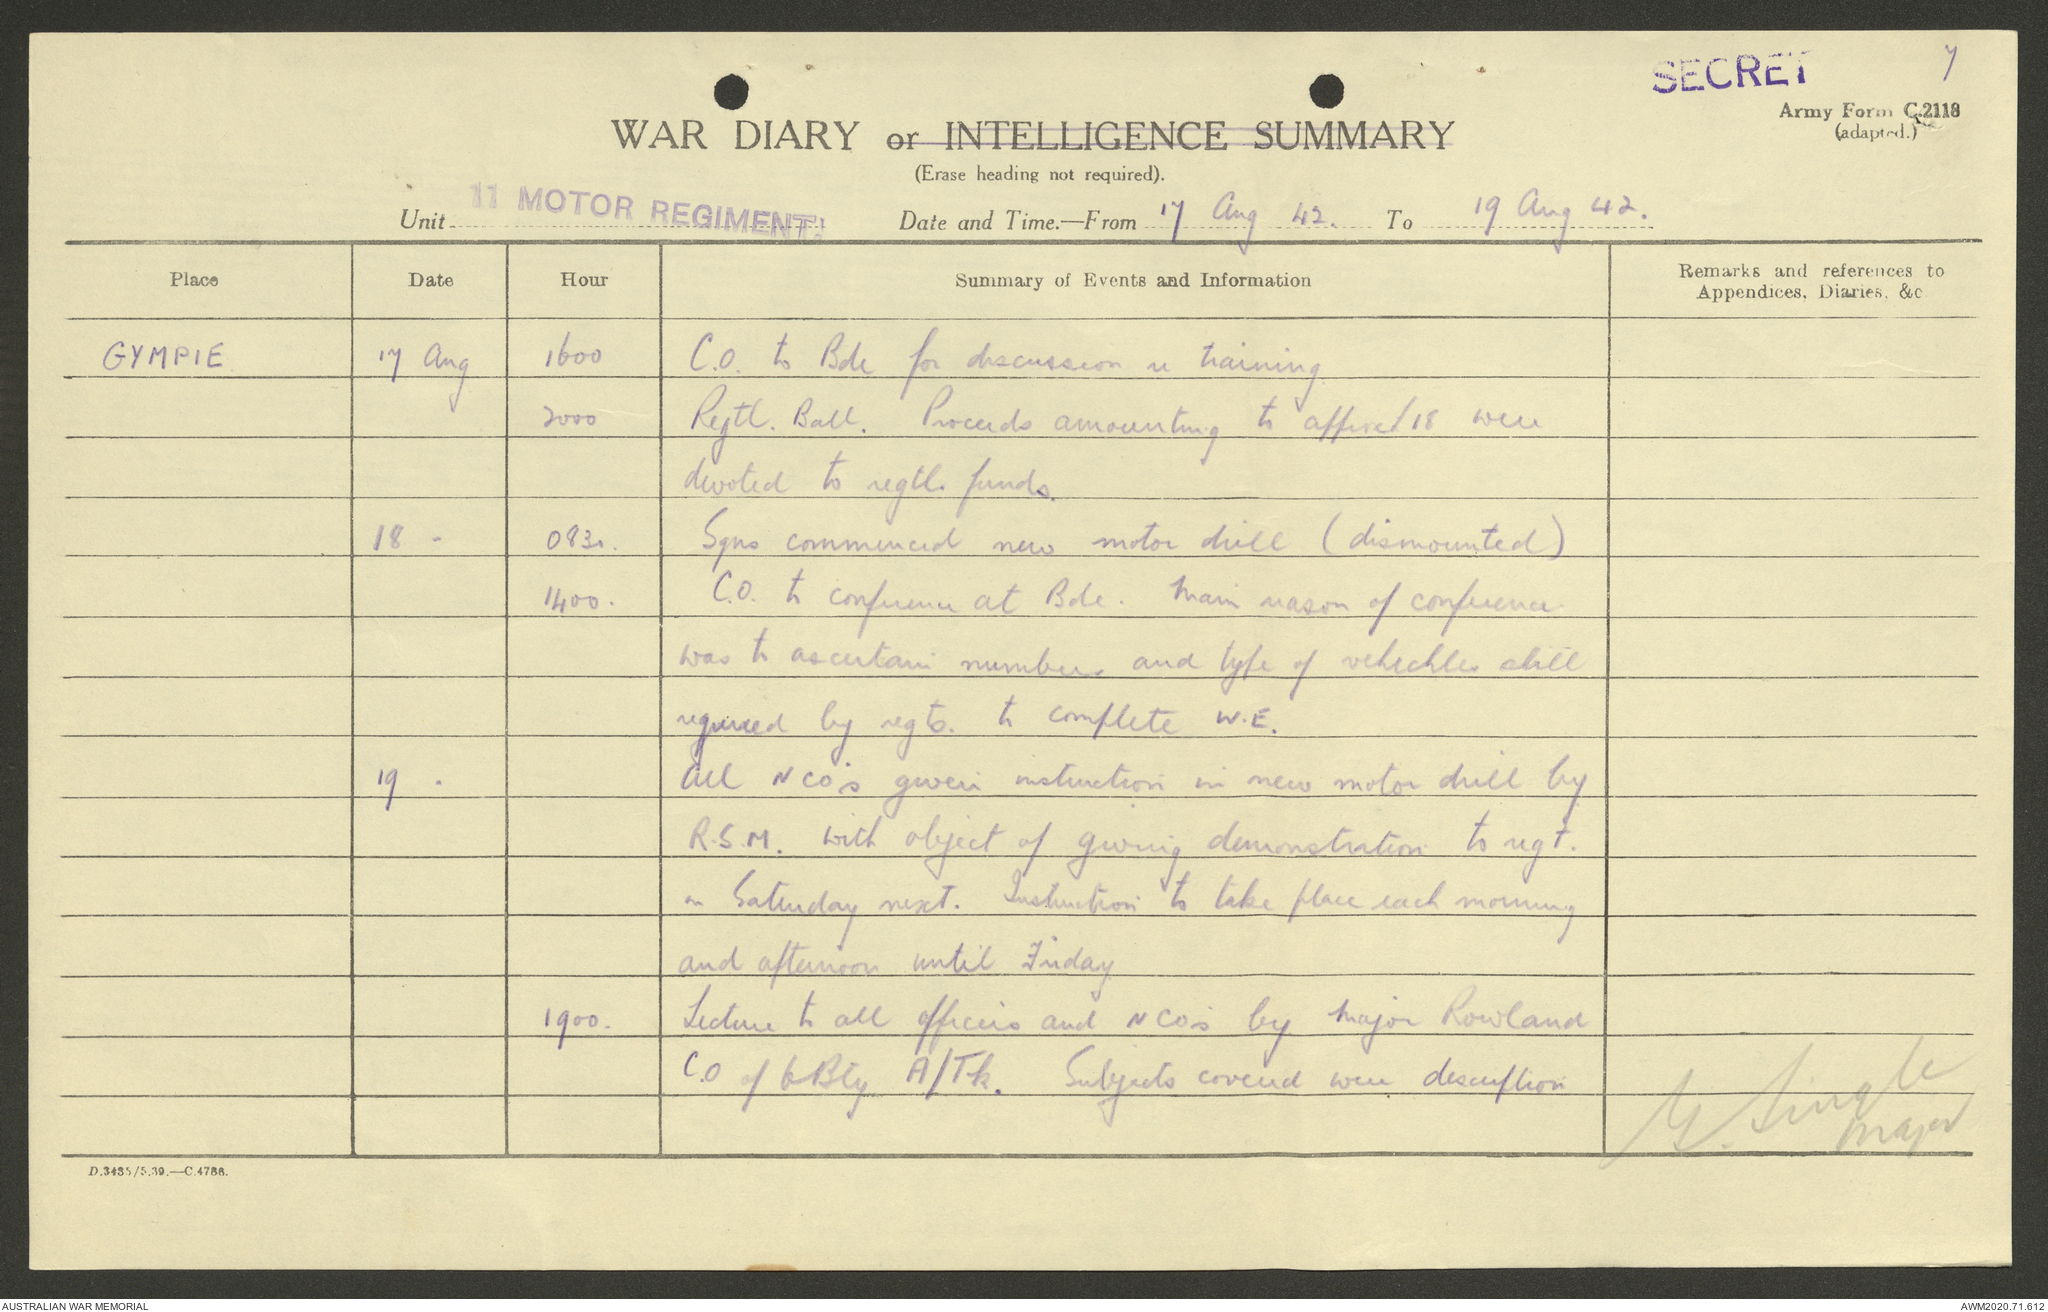 SECRET
7
Army Form C.2118
(adapted.)
WAR DIARY or INTELLIGENCE SUMMARY
(Erase heading not required).
Unit 11 MOTOR REGIMENT. Date and Time.—From 17 Aug 42. To 19 Aug 42.
Place Date Hour Summary of Events and Information Remarks and references to
Appendices, Diaries, &c
GYMPIE 17 Aug 1600 C.O. to Bde for discussion re training
2000 Regtl. Ball. Proceeds amounting to approx £18 were
devoted to regtl. funds.
18 - 0830. Sqns commenced new motor drill (dismounted)
1400. C.O. to conference at Bde. Main reason of conference
was to ascertain numbers and type of vehichles still
required by regts. to complete W.E.
19 - All NCO's given instruction in new motor drill by
R.S.M. with object of giving demonstration to regt.
on Saturday next. Instruction to take place each morning
and afternoon until Friday
1900. Lecture to all officers and NCO's by Major Rowland
C.O of 6 Bty A/Tk. Subjects covered were description
Single
Major
D.3435/5.39.—C.4788.
AUSTRALIAN WAR MEMORIAL
AWM2020.71.612